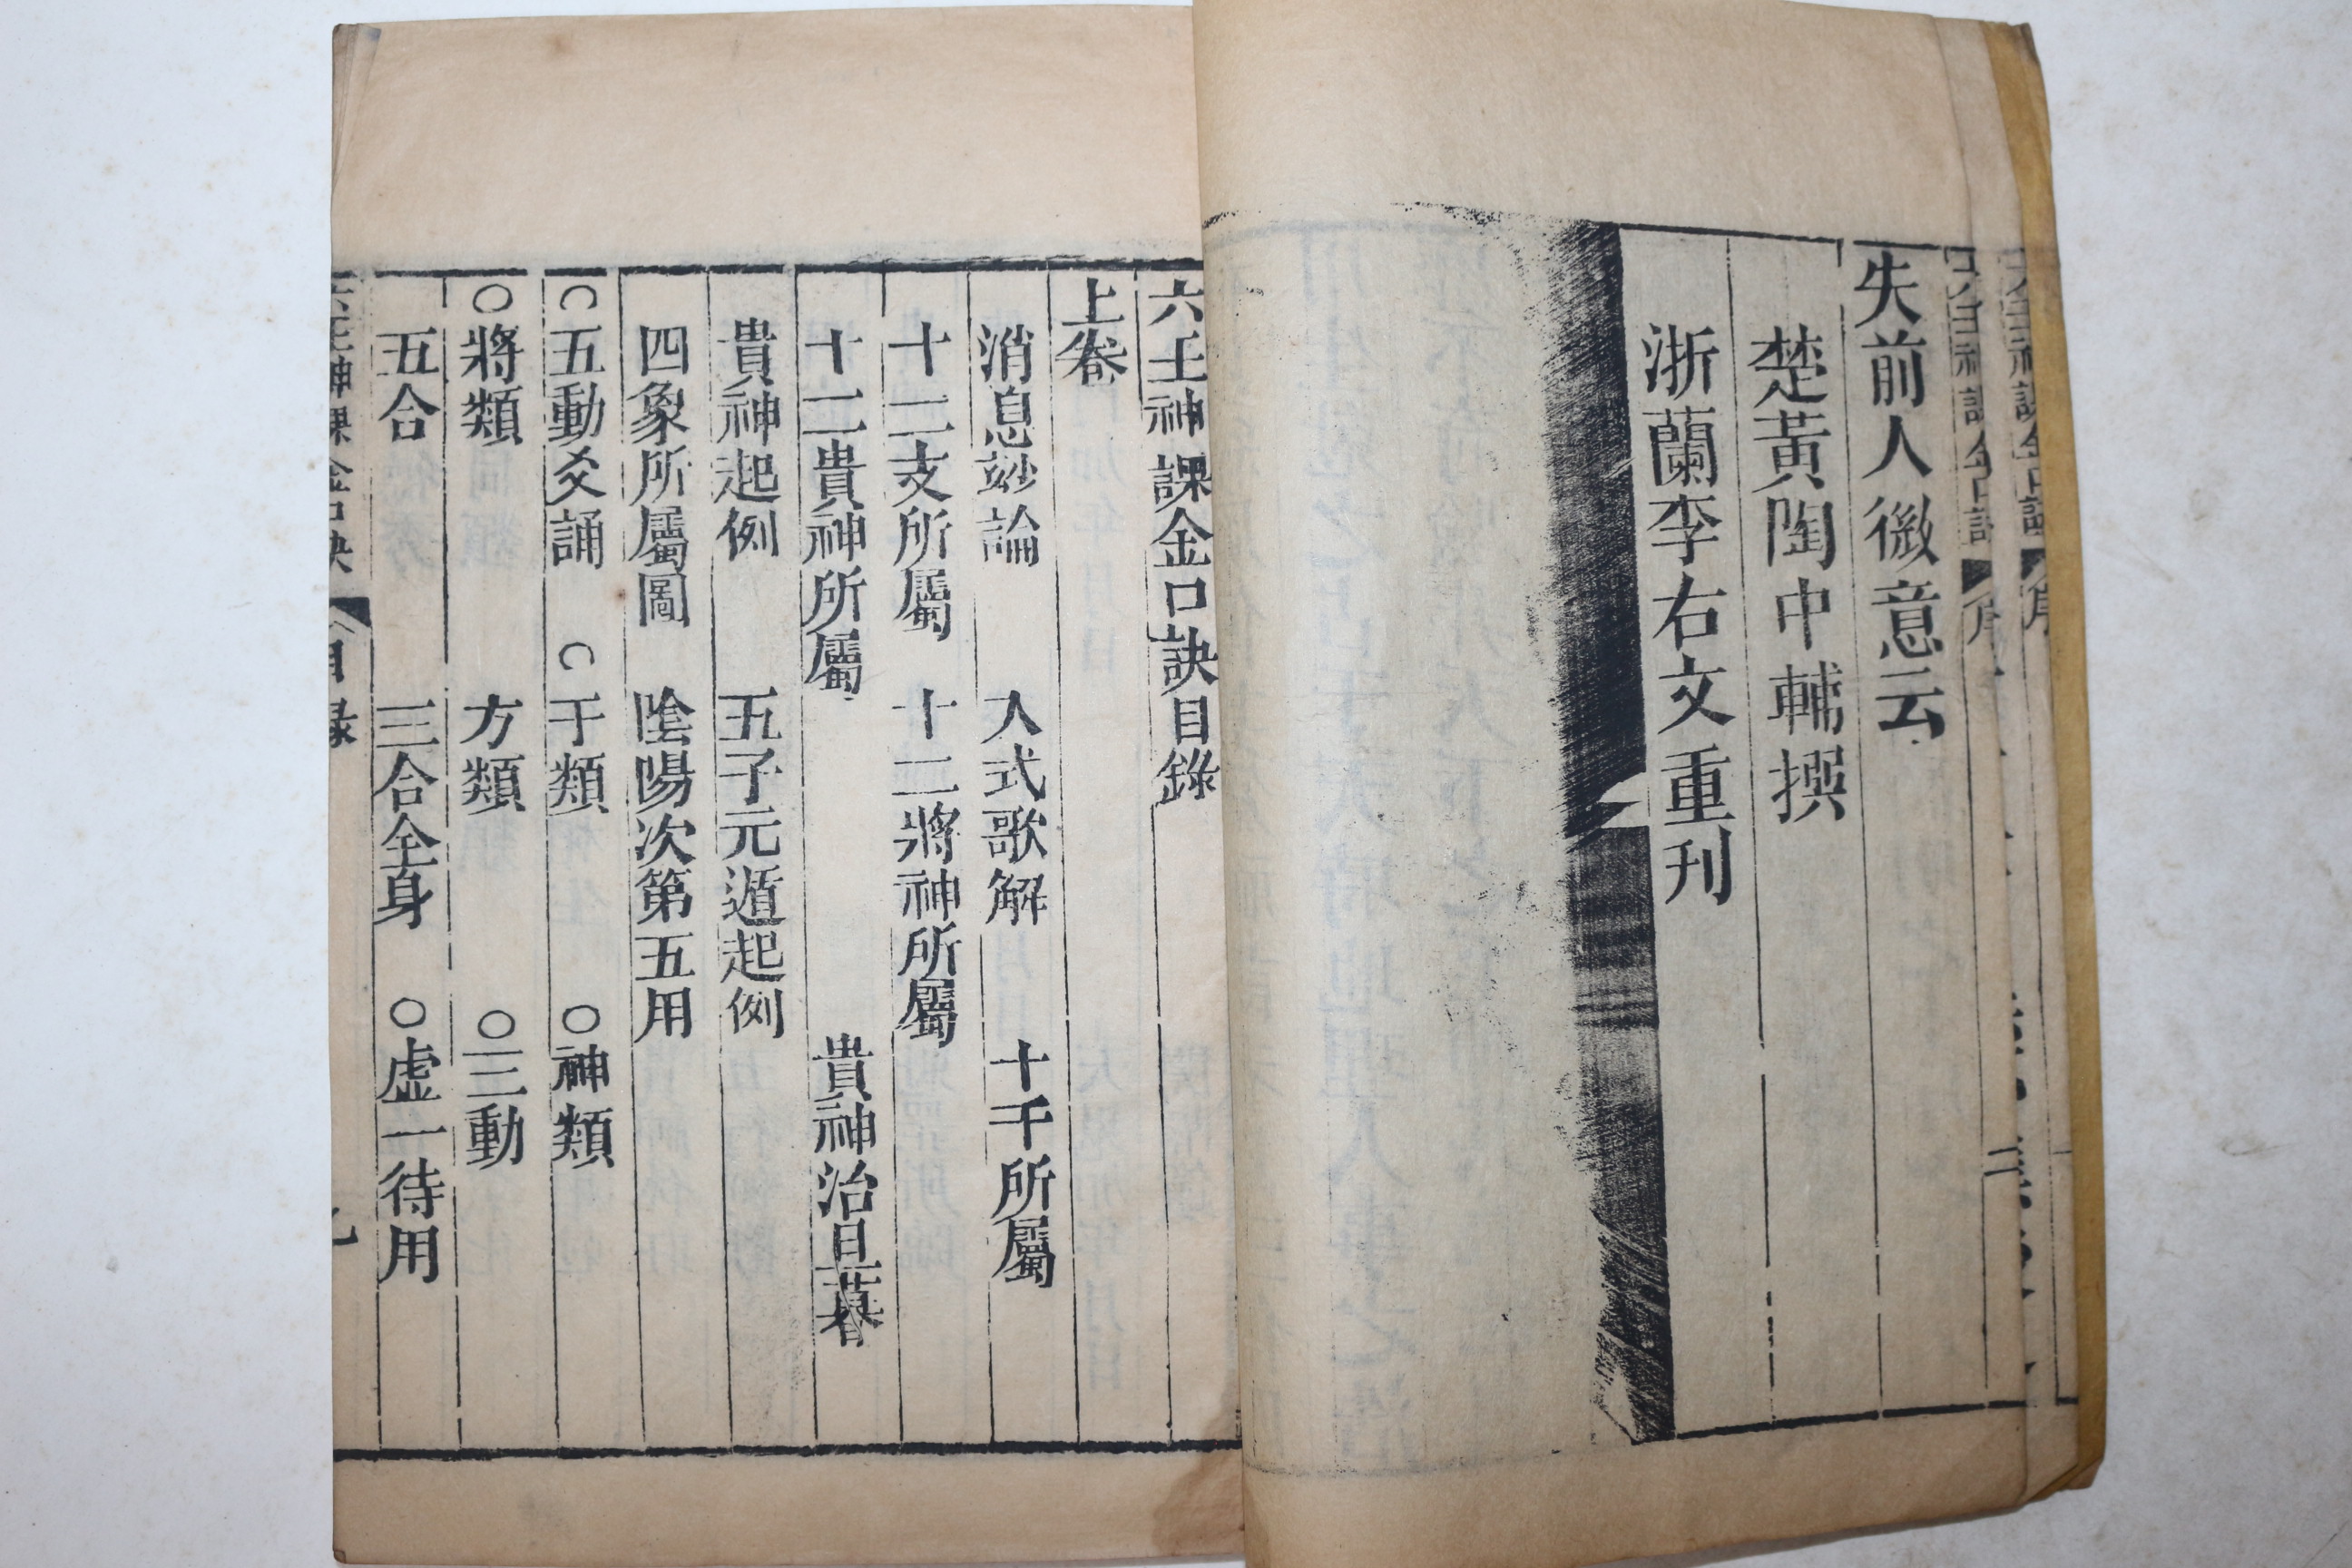 失前人微意云
楚黃陶中輔撰
浙蘭李右文重刊
六壬神課金口訣目錄
上卷
消息妙論 入式歌解 十干所屬
十二支所屬 十二將神所屬
十二貴神所屬 貴神治旦暮
貴神起例 五子元遁起例
四象所屬圖 陰陽次第五用
○五動爻誦 ○干類 ○神類
○將類 方類 ○三動
五合 三合全身 ○虛一待用
六壬神課金口訣 目錄